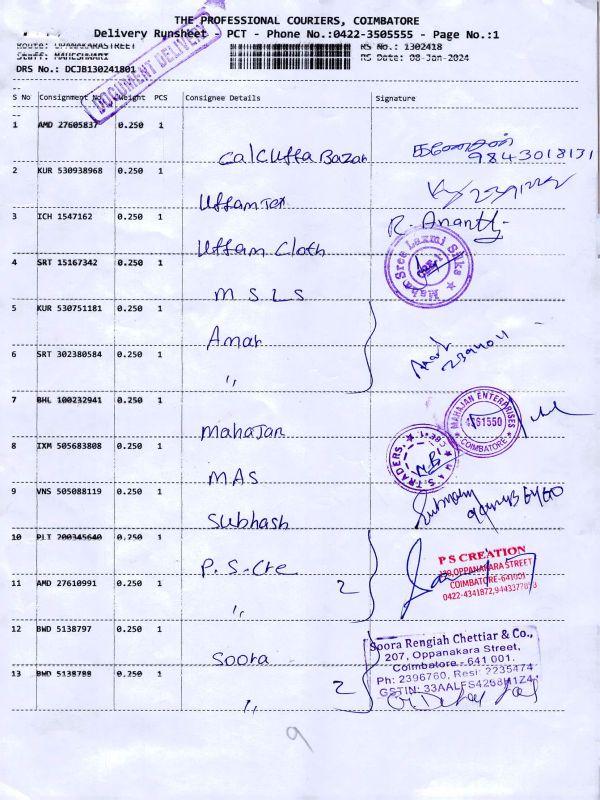 THE PROFESSIONAL COURIERS, COIMBATORE
Delivery Runsheet - PCT - Phone No.:0422-3505555 - Page No.:1
Route: OPANAKARASTREET RS No.: 1302418
Staff: MAHESHWARI RS Date: 08-Jan-2024
DRS No.: DCJB130241801
DOCUMENT DELIVERY
S No Consignment No. Weight PCS Consignee Details Signature
1 AMD 27605837 0.250 1 Calcutta Bazar 9843018131
2 KUR 530938968 0.250 1 Uttam Tex
3 ICH 1547162 0.250 1 Uttam Cloth R. Ananth
4 SRT 15167342 0.250 1 M S L S Maha Sree Laxmi Silks
5 KUR 530751181 0.250 1 Amar
6 SRT 302380584 0.250 1 "
7 BHL 100232941 0.250 1 Mahajan MAHAJAN ENTERPRISES 4361550 COIMBATORE
8 IXM 505683808 0.250 1 MAS M.A.S. TRADERS CBE-1
9 VNS 505088119 0.250 1 Subhash
10 PLT 200345640 0.250 1 P. S. Cre 2
P S CREATION
OPPANAKARA STREET
COIMBATORE-641001
0422-4341872,
11 AMD 27610991 0.250 1 "
12 BWD 5138797 0.250 1 Soora 2
Soora Rengiah Chettiar & Co.,
207, Oppanakara Street,
Coimbatore - 641 001.
Ph: 2396760, Resi: 2235474
GSTIN: 33AALFS4288H1Z4
13 BWD 5138788 0.250 1 "
9